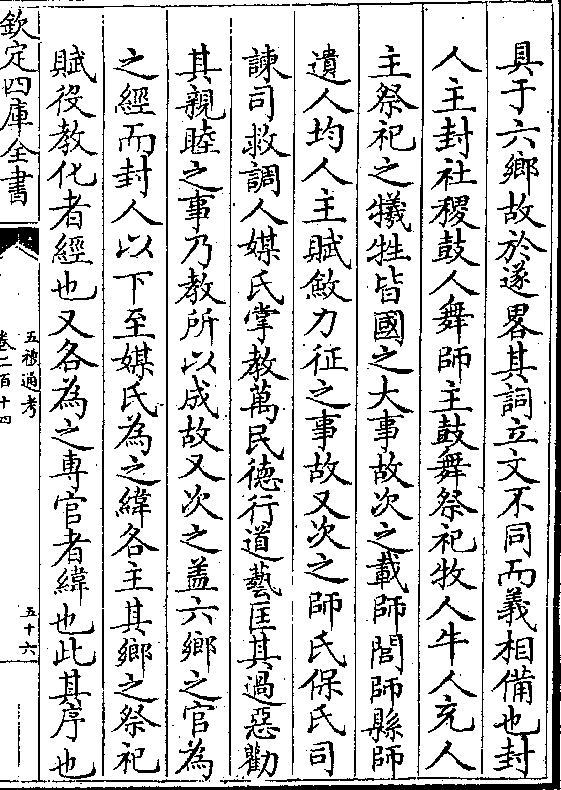 具于六鄉故於遂畧其詞立文不同而義相備也封
人主封社稷鼓人舞師主鼓舞祭祀牧人牛人充人
主祭祀之犧牲皆國之大事故次之載師閭師縣師
遺人均人主賦斂力征之事故又次之師氏保氏司
諫司救調人媒氏掌教萬民徳行道藝匡其過惡勸
其親睦之事乃教所以成故又次之葢六鄉之官為
之經而封人以下至媒氏為之緯各主其鄉之祭祀
賦役教化者經也又各為之専官者緯也此其序也
欽定四庫全書
五禮通考
卷二百十四
五十六